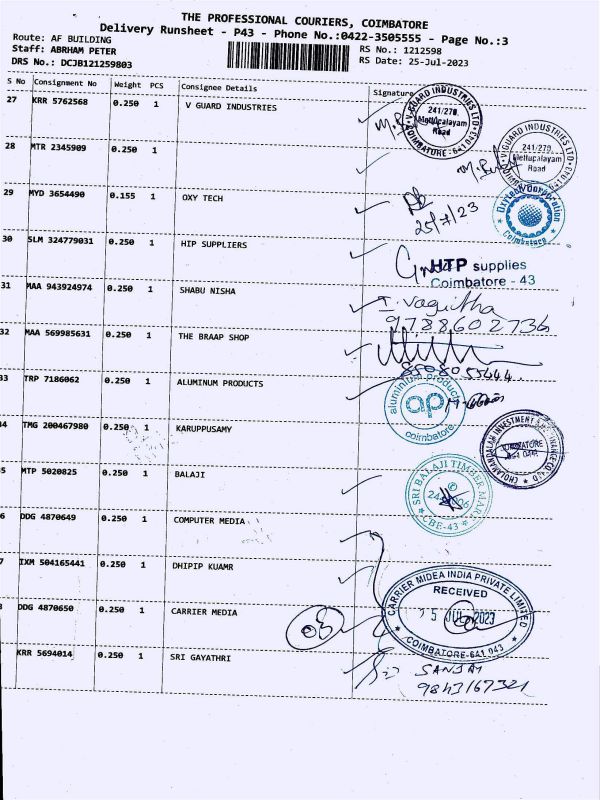 THE PROFESSIONAL COURIERS, COIMBATORE
Delivery Runsheet - P43 - Phone No.:0422-3505555 - Page No.:3
Route: AF BUILDING
Staff: ABRHAM PETER
DRS No.: DCJB121259803
RS No.: 1212598
RS Date: 25-Jul-2023
S No Consignment No Weight PCS Consignee Details Signature
27 KRR 5762568 0.250 1 V GUARD INDUSTRIES
V GUARD INDUSTRIES LTD
241/279,
Mettupalayam
Road
COIMBATORE - 641 043
28 MTR 2345909 0.250 1
V GUARD INDUSTRIES LTD
241/279,
Mettupalayam
Road
29 MYD 3654490 0.155 1 OXY TECH
25/7/23
Oxytech Corporation
Coimbatore
30 SLM 324779031 0.250 1 HIP SUPPLIERS
HTP supplies
Coimbatore - 43
31 MAA 943924974 0.250 1 SHABU NISHA
9788602736
32 MAA 569985631 0.250 1 THE BRAAP SHOP
33 TRP 7186062 0.250 1 ALUMINUM PRODUCTS
aluminium products
ap
coimbatore
34 TMG 200467980 0.250 1 KARUPPUSAMY
CHOLAMANDALAM INVESTMENT & FINANCE CO LTD
COIMBATORE
5 MTP 5020825 0.250 1 BALAJI
SRI BALAJI TIMBER MART
CBE-43
6 DDG 4870649 0.250 1 COMPUTER MEDIA
7 IXM 504165441 0.250 1 DHIPIP KUAMR
DDG 4870650 0.250 1 CARRIER MEDIA
CARRIER MIDEA INDIA PRIVATE LIMITED
RECEIVED
COIMBATORE-641 043
KRR 5694014 0.250 1 SRI GAYATHRI
SANJAY
9843167321